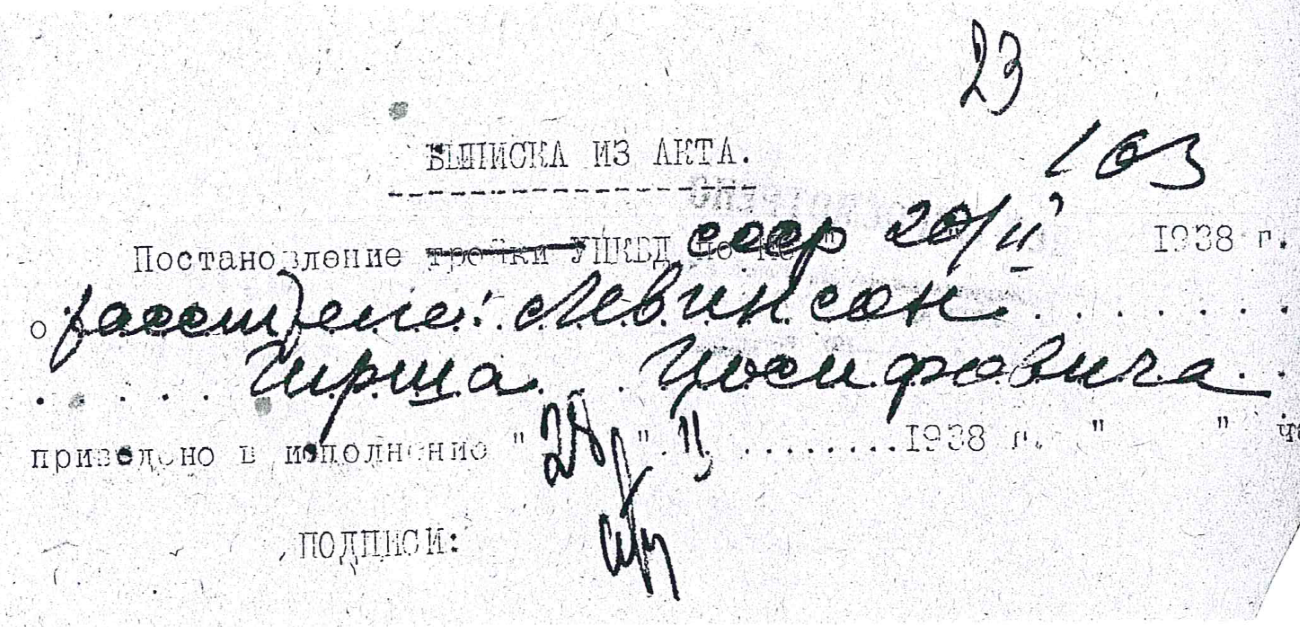 23
103
ВЫПИСКА ИЗ АКТА.
Постановление тройки УНКВД по ссср 20/II 1938 г.
о расстреле: Левинсон
Гирша Иосифовича
приведено в исполнение "28" II 1938 г. " " ча
ПОДПИСИ: